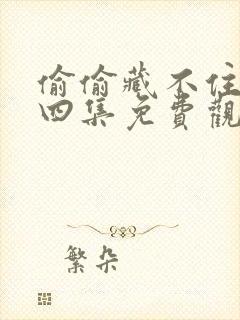 偷偷藏不住
四集免費觀
繁朵